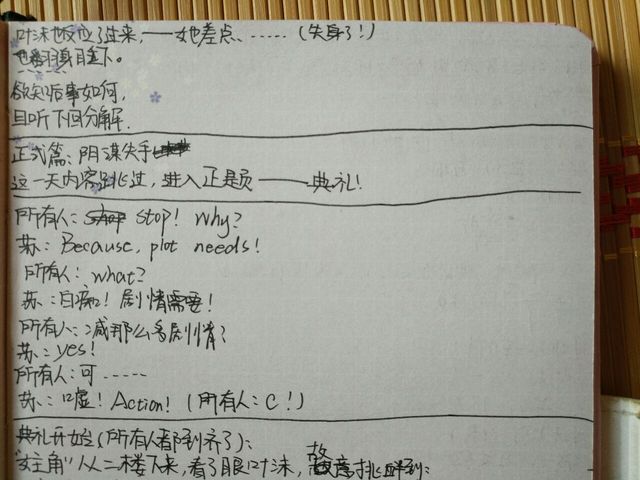 叶沫也反应了过来,——她差点……(失身了!)
也翻身目下。
欲知后事如何,
且听下回分解.
正式篇:阴谋失手
这一天内容跳过,进入正是页——典礼!
所有人: stop! Why?
苏: Because, plot needs!
所有人: what?
苏:白痴!剧情需要!
所有人:减那么多剧情?
苏: yes!
所有人:可……
苏:嘘! Action! (所有人: C!)
典礼开始(所有人都到齐了):
"女主角"从二楼下来,看了眼叶沫,故意挑衅到: